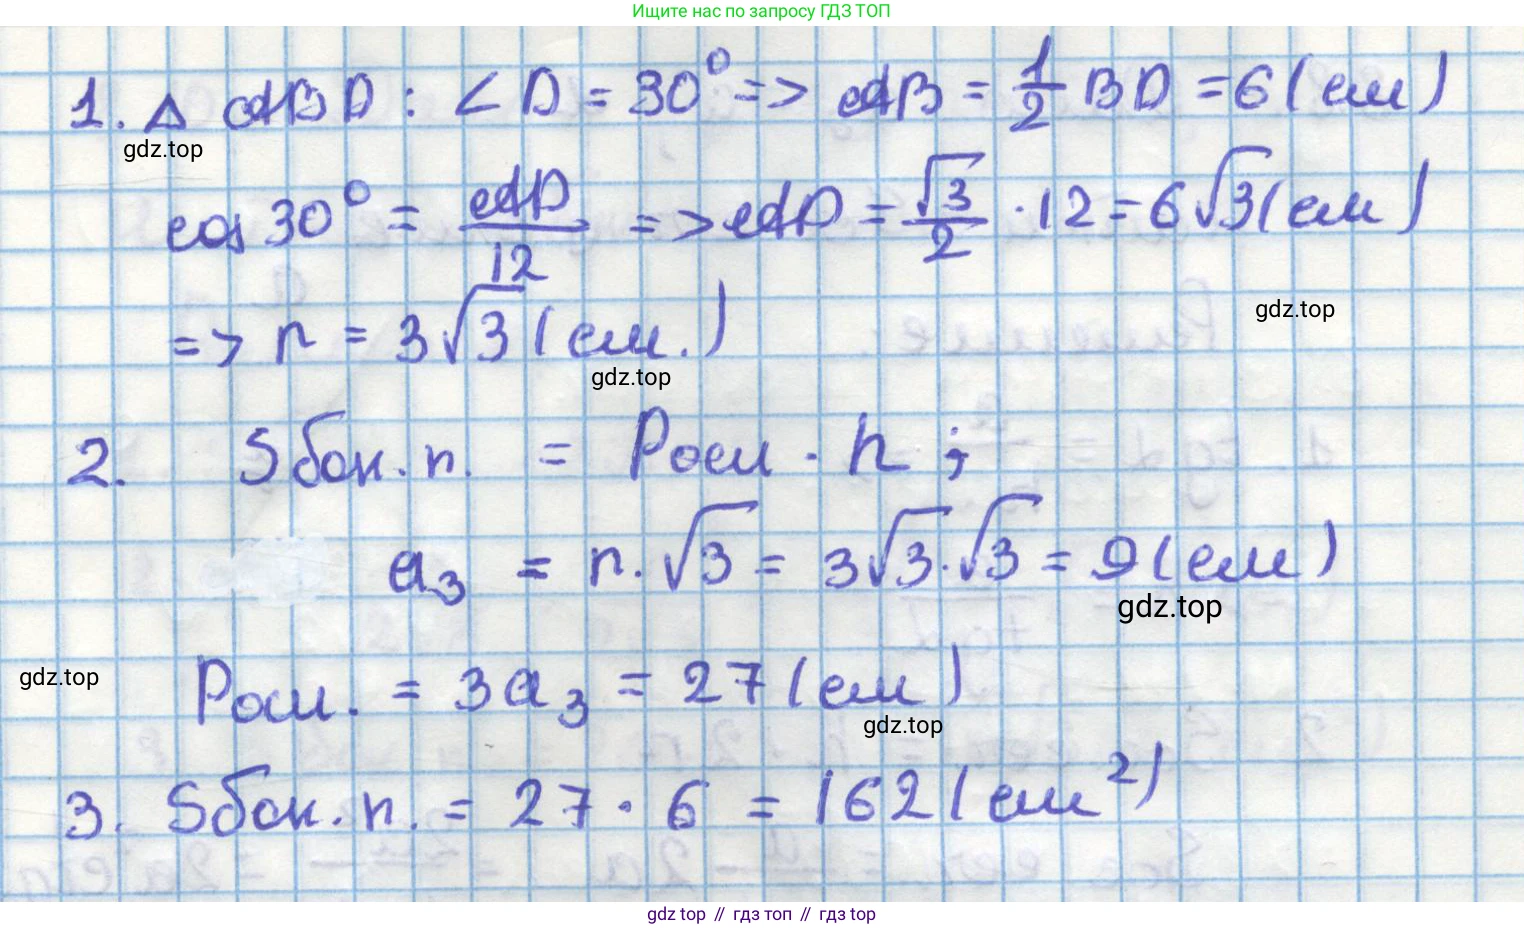 Ищите нас по запросу ГДЗ ТОП
1. Δ ABD : ∠D = 30° => AB = 1/2 BD = 6 (см)
gdz.top
cos 30° = AD/12 => AD = √3/2 · 12 = 6√3 (см)
gdz.top
=> r = 3√3 (см.)
gdz.top
2. Sбок. п. = Pосн · h ;
a₃ = r · √3 = 3√3 · √3 = 9 (см)
gdz.top
gdz.top
Pосн. = 3a₃ = 27 (см)
gdz.top
3. Sбок. п. = 27 · 6 = 162 (см²)
gdz.top // гдз топ // гдз top